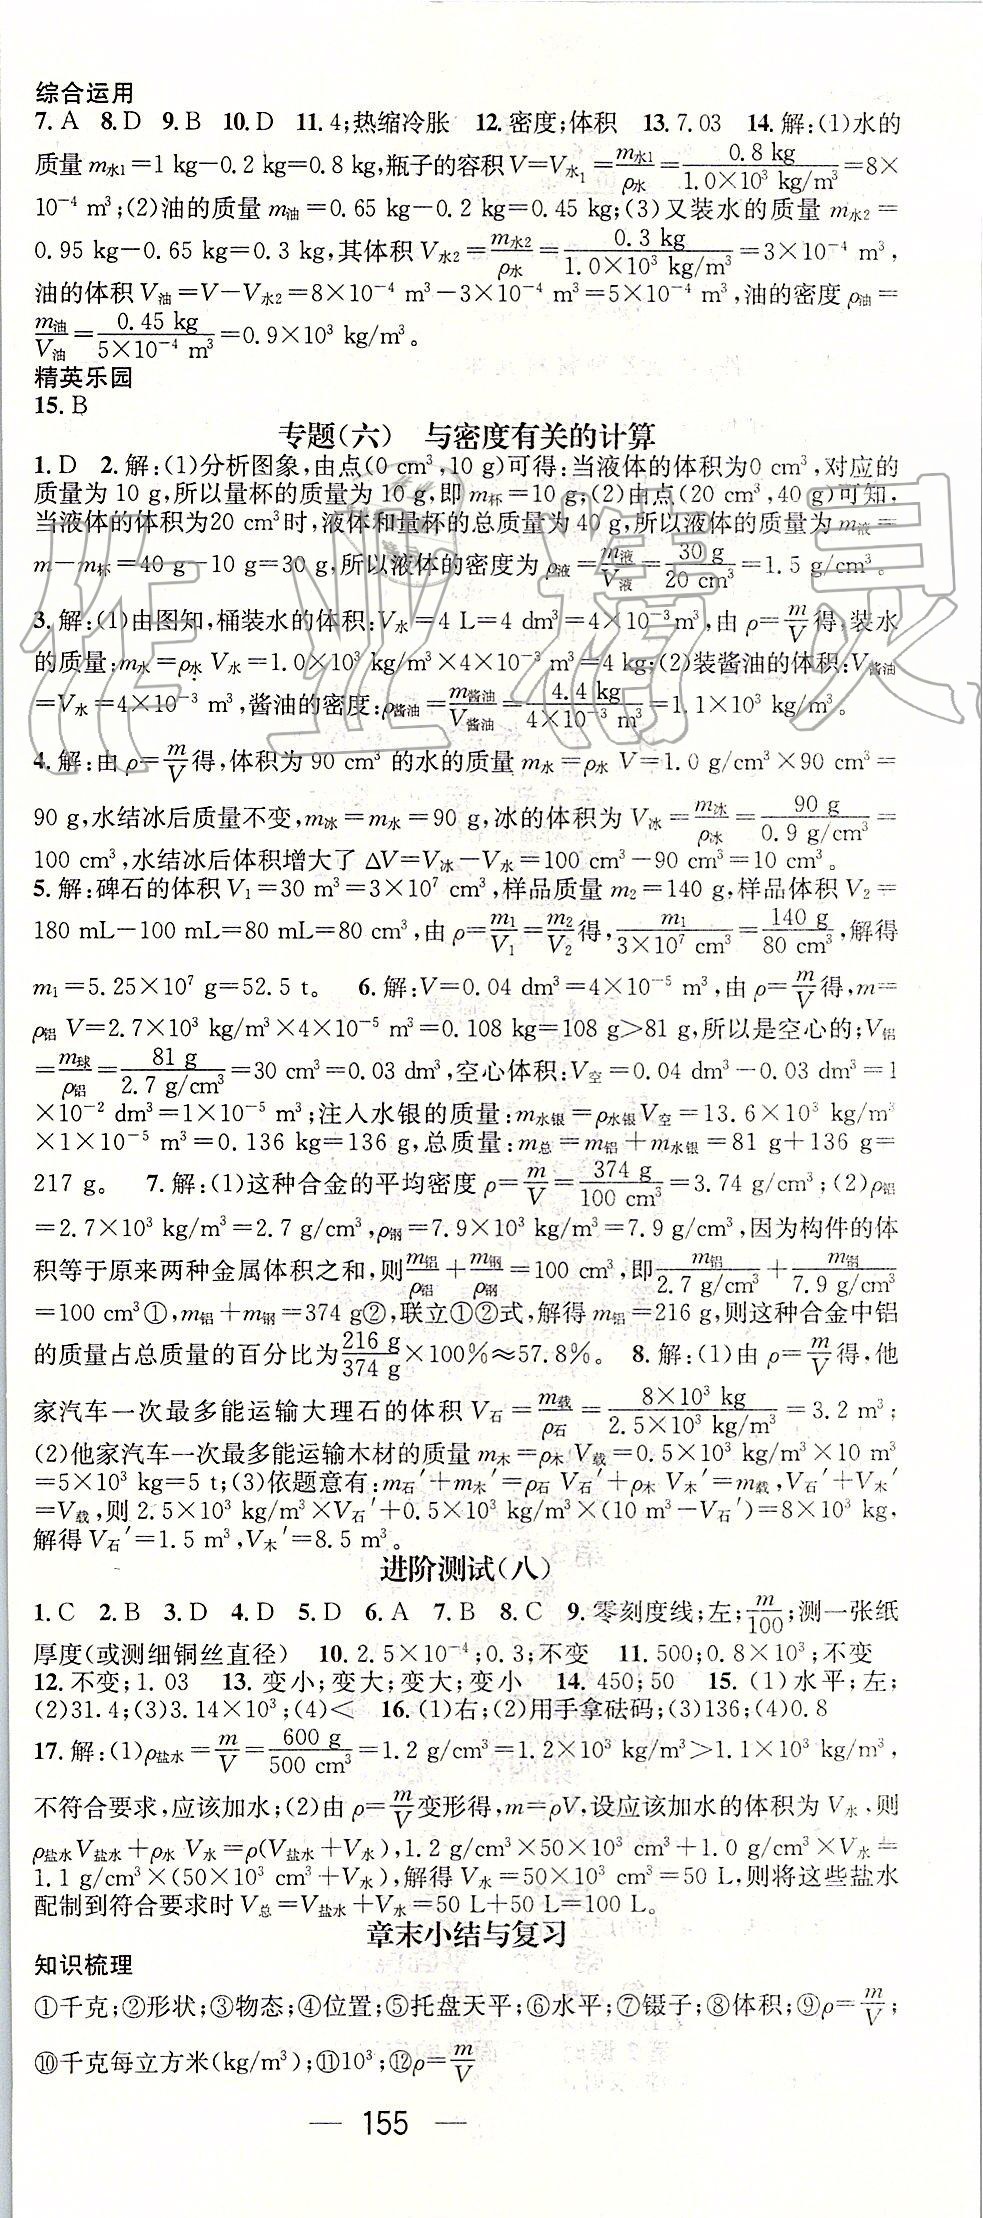 综合运用
7. A 8. D 9. B 10. D 11. 4;热缩冷胀 12. 密度;体积 13. 7.03 14. 解:(1)水的
质量 m水1=1 kg-0.2 kg=0.8 kg,瓶子的容积 V=V水1=m水1/ρ水=0.8 kg/(1.0×10³ kg/m³)=8×
10⁻⁴ m³;(2)油的质量 m油=0.65 kg-0.2 kg=0.45 kg;(3)又装水的质量 m水2=
0.95 kg-0.65 kg=0.3 kg,其体积 V水2=m水2/ρ水=0.3 kg/(1.0×10³ kg/m³)=3×10⁻⁴ m³,
油的体积 V油=V-V水2=8×10⁻⁴ m³-3×10⁻⁴ m³=5×10⁻⁴ m³,油的密度 ρ油=
m油/V油=0.45 kg/(5×10⁻⁴ m³)=0.9×10³ kg/m³。
精英乐园
15. B
专题(六) 与密度有关的计算
1. D 2. 解:(1)分析图象,由点(0 cm³,10 g)可得:当液体的体积为0 cm³,对应的
质量为 10 g,所以量杯的质量为 10 g,即 m杯=10 g;(2)由点(20 cm³,40 g)可知,
当液体的体积为20 cm³时,液体和量杯的总质量为 40 g,所以液体的质量为 m液=
m-m杯=40 g-10 g=30 g,所以液体的密度为 ρ液=m液/V液=30 g/20 cm³=1.5 g/cm³。
3. 解:(1)由图知,桶装水的体积:V水=4 L=4 dm³=4×10⁻³m³,由 ρ=m/V得,装水
的质量:m水=ρ水 V水=1.0×10³ kg/m³×4×10⁻³ m³=4 kg;(2)装酱油的体积:V酱油
=V水=4×10⁻³ m³,酱油的密度:ρ酱油=m酱油/V酱油=4.4 kg/(4×10⁻³ m³)=1.1×10³ kg/m³。
4. 解:由 ρ=m/V得,体积为 90 cm³ 的水的质量 m水=ρ水 V=1.0 g/cm³×90 cm³=
90 g,水结冰后质量不变,m冰=m水=90 g,冰的体积为 V冰=m冰/ρ冰=90 g/(0.9 g/cm³)=
100 cm³,水结冰后体积增大了 ΔV=V冰-V水=100 cm³-90 cm³=10 cm³。
5. 解:碑石的体积 V₁=30 m³=3×10⁷ cm³,样品质量 m₂=140 g,样品体积 V₂=
180 mL-100 mL=80 mL=80 cm³,由 ρ=m₁/V₁=m₂/V₂得,m₁/(3×10⁷ cm³)=140 g/80 cm³,解得
m₁=5.25×10⁷ g=52.5 t。 6. 解:V=0.04 dm³=4×10⁻⁵ m³,由 ρ=m/V得,m=
ρ铝 V=2.7×10³ kg/m³×4×10⁻⁵ m³=0.108 kg=108 g>81 g,所以是空心的;V铝
=m球/ρ铝=81 g/(2.7 g/cm³)=30 cm³=0.03 dm³,空心体积:V空=0.04 dm³-0.03 dm³=1
×10⁻² dm³=1×10⁻⁵ m³;注入水银的质量:m水银=ρ水银V空=13.6×10³ kg/m³
×1×10⁻⁵ m³=0.136 kg=136 g,总质量:m总=m铝+m水银=81 g+136 g=
217 g。 7. 解:(1)这种合金的平均密度 ρ=m/V=374 g/100 cm³=3.74 g/cm³;(2)ρ铝
=2.7×10³ kg/m³=2.7 g/cm³,ρ钢=7.9×10³ kg/m³=7.9 g/cm³,因为构件的体
积等于原来两种金属体积之和,则m铝/ρ铝+m钢/ρ钢=100 cm³,即m铝/(2.7 g/cm³)+m钢/(7.9 g/cm³)
=100 cm³①,m铝+m钢=374 g②,联立①②式,解得 m铝=216 g,则这种合金中铝
的质量占总质量的百分比为216 g/374 g×100%≈57.8%。 8. 解:(1)由 ρ=m/V得,他
家汽车一次最多能运输大理石的体积 V石=m载/ρ石=8×10³ kg/(2.5×10³ kg/m³)=3.2 m³;
(2)他家汽车一次最多能运输木材的质量 m木=ρ木 V载=0.5×10³ kg/m³×10 m³
=5×10³ kg=5 t;(3)依题意有:m石′+m木′=ρ石 V石′+ρ木 V木′=m载,V石′+V木′
=V载,则 2.5×10³ kg/m³×V石′+0.5×10³ kg/m³×(10 m³-V石′)=8×10³ kg,
解得 V石′=1.5 m³,V木′=8.5 m³。
进阶测试(八)
1. C 2. B 3. D 4. D 5. D 6. A 7. B 8. C 9. 零刻度线;左;m/100;测一张纸
厚度(或测细铜丝直径) 10. 2.5×10⁻⁴;0.3;不变 11. 500;0.8×10³;不变
12. 不变;1.03 13. 变小;变大;变大;变小 14. 450;50 15. (1)水平;左;
(2)31.4;(3)3.14×10³;(4)< 16. (1)右;(2)用手拿砝码;(3)136;(4)0.8
17. 解:(1)ρ盐水=m/V=600 g/500 cm³=1.2 g/cm³=1.2×10³ kg/m³>1.1×10³ kg/m³,
不符合要求,应该加水;(2)由 ρ=m/V变形得,m=ρV,设应该加水的体积为 V水,则
ρ盐水V盐水+ρ水 V水=ρ(V盐水+V水),1.2 g/cm³×50×10³ cm³+1.0 g/cm³×V水=
1.1 g/cm³×(50×10³ cm³+V水),解得 V水=50×10³ cm³=50 L,则将这些盐水
配制到符合要求时 V总=V盐水+V水=50 L+50 L=100 L。
章末小结与复习
知识梳理
①千克;②形状;③物态;④位置;⑤托盘天平;⑥水平;⑦镊子;⑧体积;⑨ρ=m/V;
⑩千克每立方米(kg/m³);⑪10³;⑫ρ=m/V
— 155 —
作业精灵